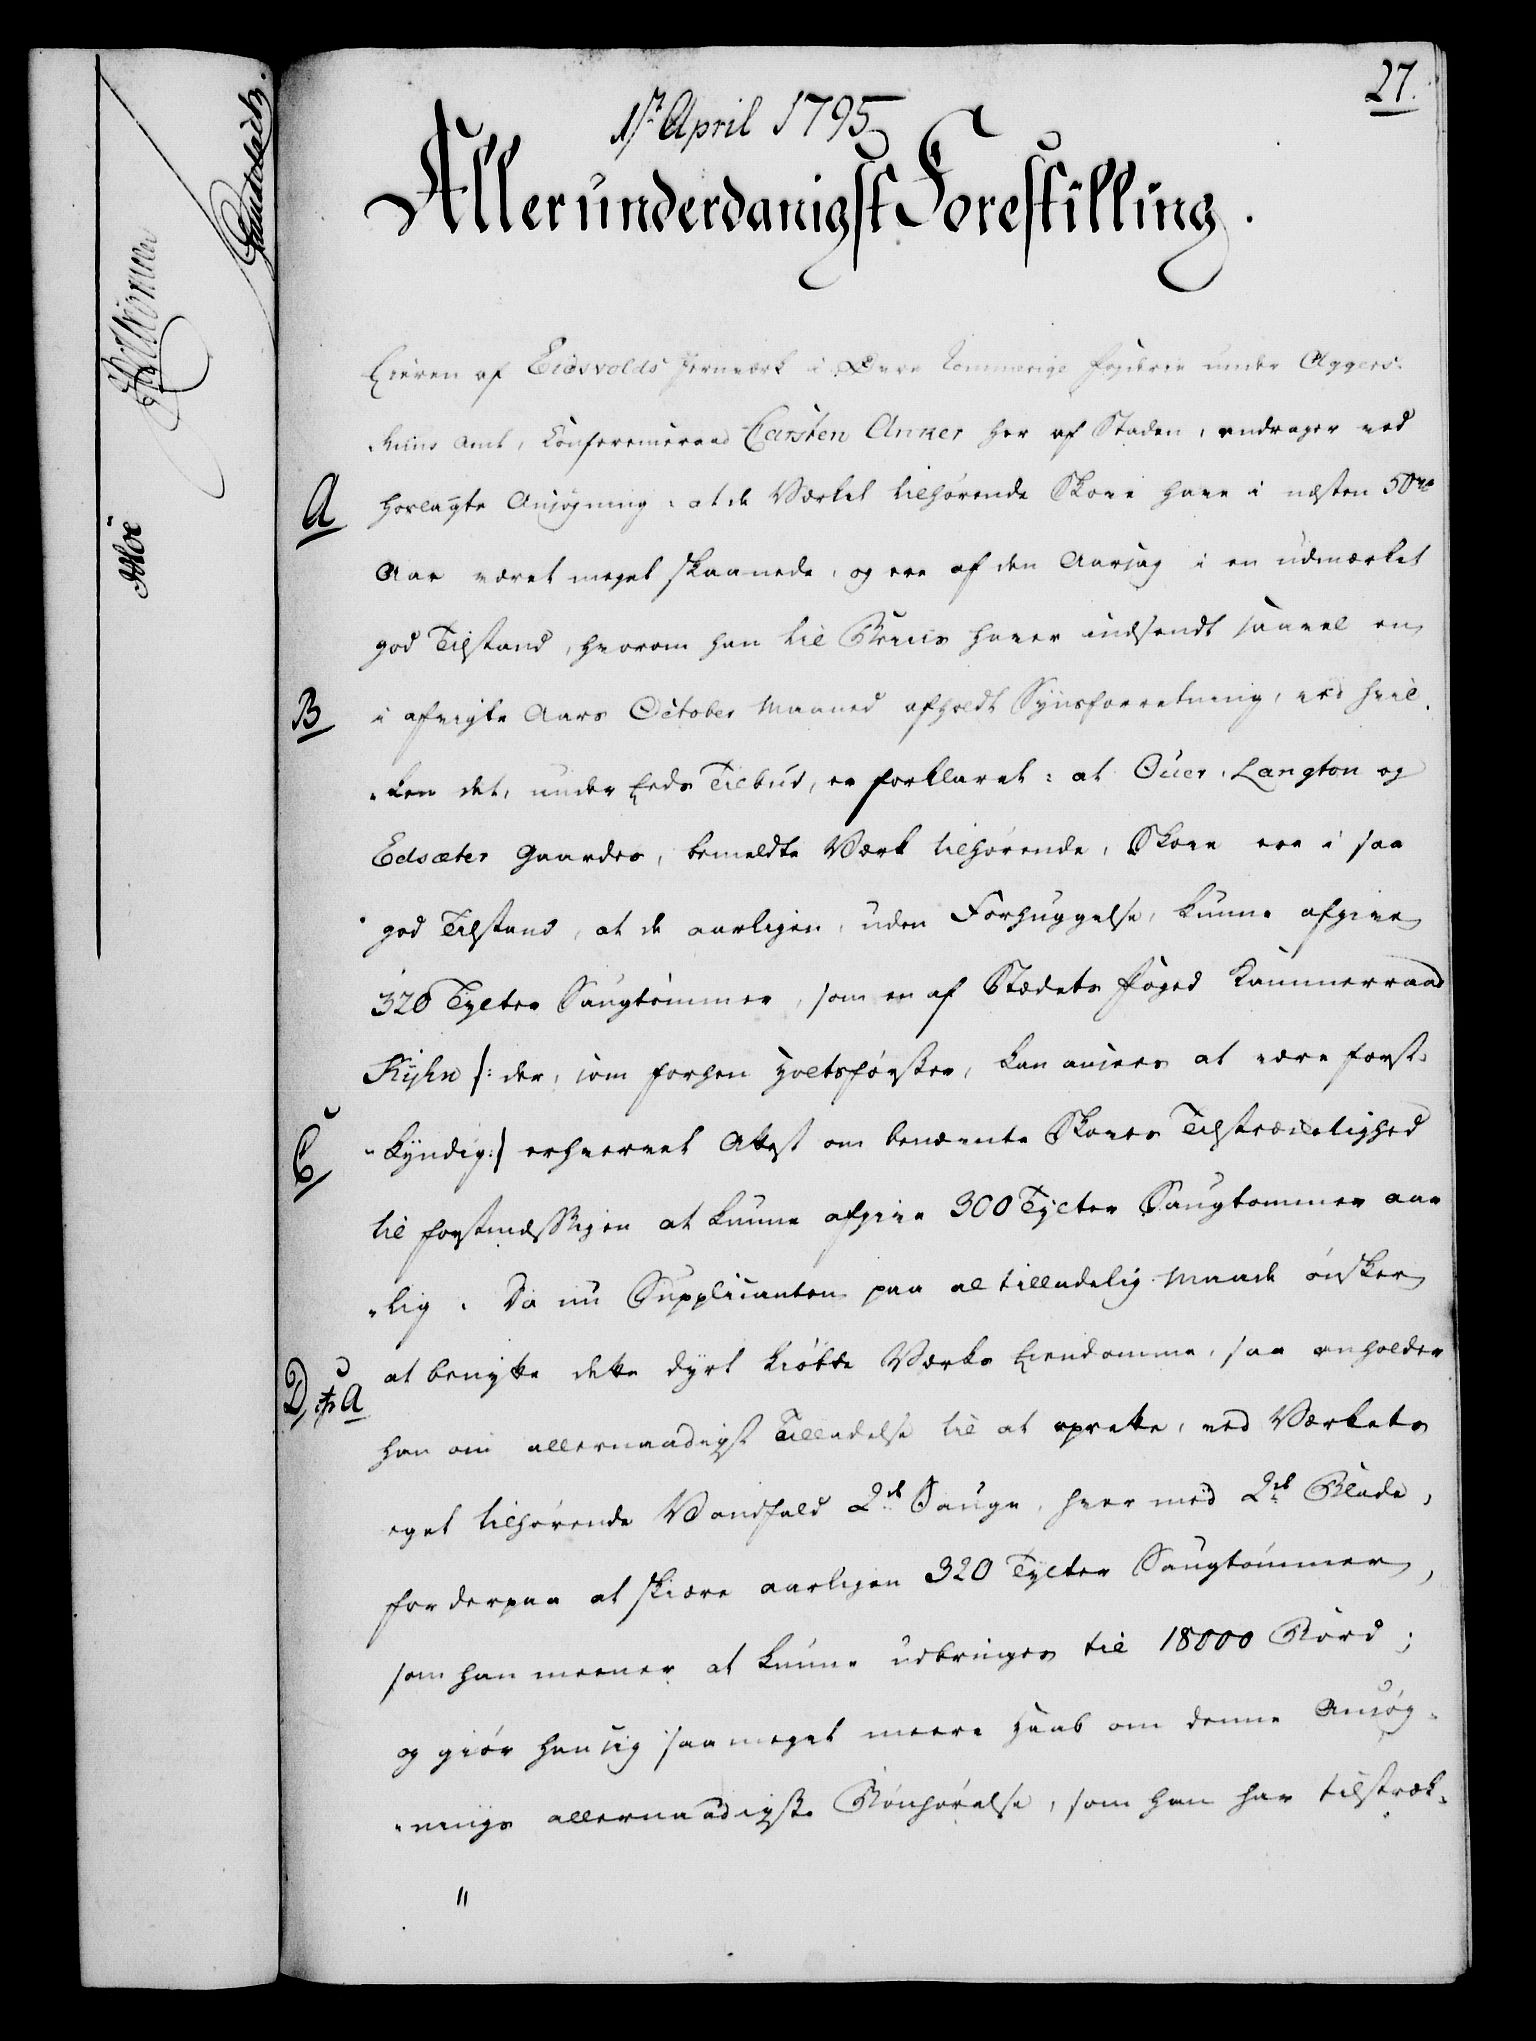 27.
1st April 1795
Allerunderdanigst Forestilling.
Eieren af Eidsvolds Jernværk i Øvre Rommerige Fogderie under Aggers-
huus Amt, Conferenceraad Carsten Anker her af Staden, andrager ved
A
hoslagte Ansøgning: at de Værket tilhørende Skove have i næsten 50ve
Aar været meget skaanede, og ere af den Aarsag i en udmærket
god Tilstand, hvorom han til Beviis haver indsendt saavel en
B
i afvigte Aars October Maaned afholdt Synsforretning, ved hvil-
"ken det, under Eeds Tilbud, er forklaret: at Over-Langton og
Edsæter Gaardes, bemeldte Værk tilhørende, Skove ere i saa
god Tilstand, at de aarligen, uden Forhuggelse, kunne afgive
320 Tylter Saugtømmer, som en af Stædets Foged Kammerraad
Kyhn /: der, som forhen Holtsførster, kan ansees at være forst-
C
"kyndig :/ erhvervet Attest om benævnte Skoves Tilstrækkelighed
til forstmæssigen at kunne afgive 300 Tylter Saugtømmer aar
"lig. Da nu Supplicanten paa al tilladelig Maade ønsker
at benytte dette dyrt kiøbte Værks Eiendomme, saa anholder
D, A
han om allernaadigst Tilladelse til at oprette, ved Værkets
eget tilhørende Vandfald 2de Sauge, hver med 2de Blade,
for derpaa at skiære aarligen 320 Tylter Saugtømmer,
som han meener at kunne udbringes til 18000 Bord;
og giør han sig saameget meere Haab om denne Ansøg-
"nings allernaadigste Bønhørelse, som han har tilstræk-
"
Moe